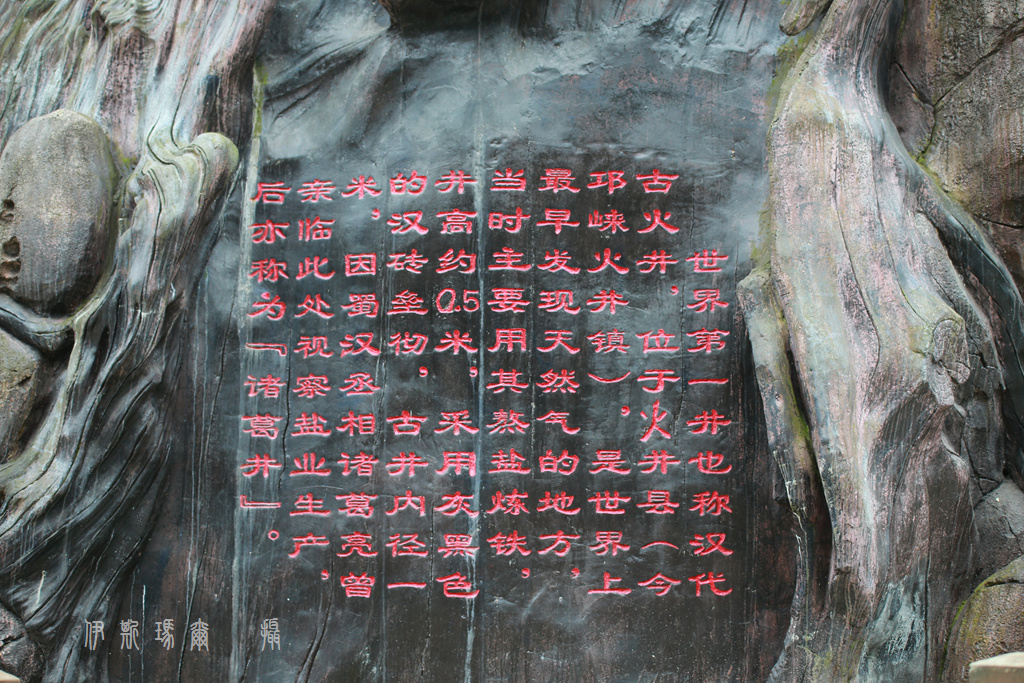 世界第一井也称汉代
古火井，位于火井县（今
邛崃火井镇），是世界上
最早发现天然气的地方，
当时主要用其熬盐炼铁，
井高约0.5米，采用灰黑色
的汉砖垒彻，古井内径一
米，因蜀汉丞相诸葛亮曾
亲临此处视察盐业生产，
后亦称为『诸葛井』。
伊斯瑪爾 攝